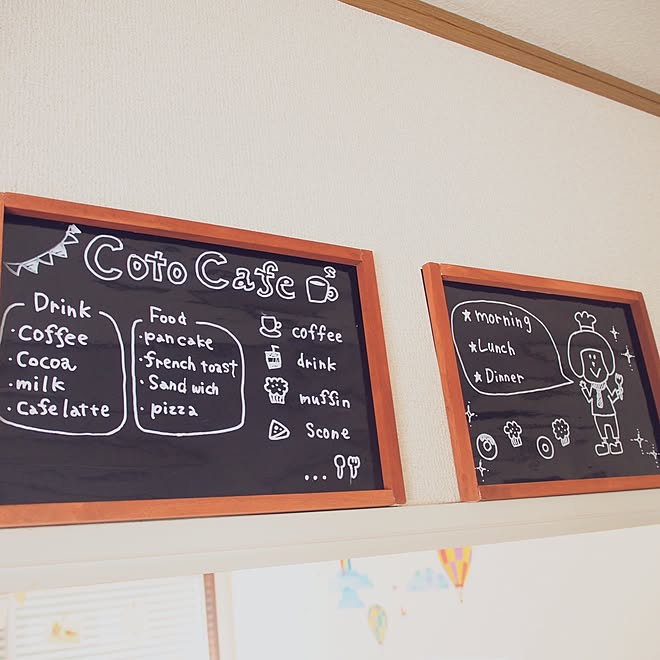 Coto Cafe
Drink
・Coffee
・Cocoa
・milk
・Cafe latte
Food
・pan cake
・french toast
・Sand wich
・pizza
coffee
drink
muffin
Scone
...
★ morning
★ Lunch
★ Dinner